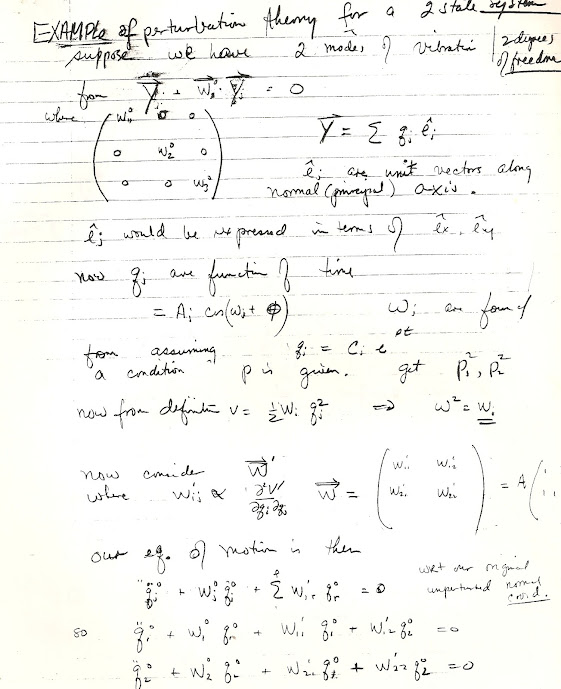 EXAMPLE of perturbation theory for a 2 state system
suppose we have 2 modes of vibration | 2 degrees of freedom
from Ÿ + W⁰ · Y = 0
where
( W₁⁰ 0 0
0 W₂⁰ 0
0 0 W₃⁰ )
Y = Σ qⱼ êⱼ
êⱼ are unit vectors along
normal (principal) axis.
êⱼ would be expressed in terms of êx, êy
now qⱼ are function of time
= Aⱼ cos(ωⱼt + ϕ) ωⱼ are found
from assuming qⱼ = Cᵢ e^{pt}
a condition p is given. get p₁², p₂²
now from definition V = ½ Wᵢ qᵢ² ⇒ ω² = Wᵢ
now consider W′
where W′ᵢⱼ ∝ ∂²V′/∂qᵢ∂qⱼ W = ( W₁₁ W₁₂ W₂₁ W₂₂ ) = A (
our eq. of motion is then
q̈ⱼ⁰ + Wⱼ⁰ qⱼ⁰ + Σ W′ⱼᵣ qᵣ⁰ = 0
wrt our original
unperturbed normal
coord.
so q̈₁⁰ + W₁⁰ q₁⁰ + W₁₁′ q₁⁰ + W′₁₂ q₂⁰ = 0
q̈₂⁰ + W₂⁰ q₂⁰ + W₂₁′ q₁⁰ + W′₂₂ q₂⁰ = 0